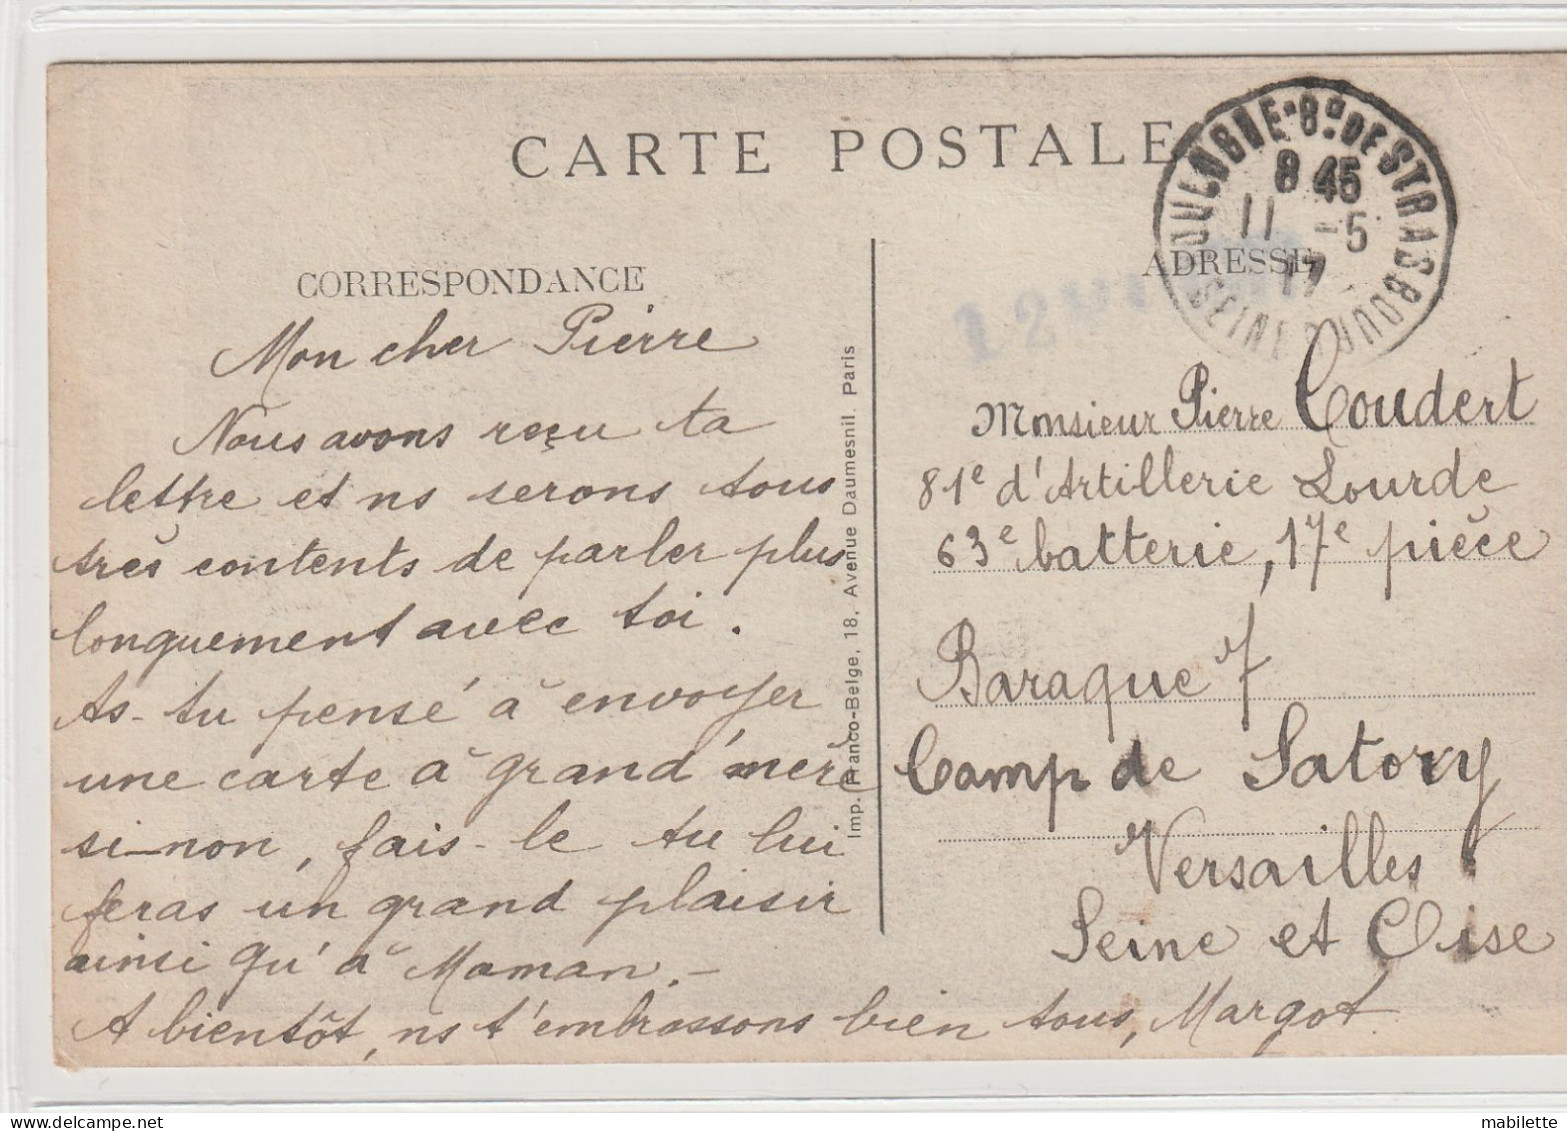 CARTE POSTALE
BOULOGNE-Bd DE STRASBOURG
8 45
11 -5
17
SEINE
CORRESPONDANCE
ADRESSE
12
Mon cher Pierre
Nous avons reçu ta
lettre et ns serons tous
très contents de parler plus
longuement avec toi.
As-tu pensé à envoyer
une carte à grand'mère
si-non, fais-le tu lui
feras un grand plaisir
ainsi qu'à Maman.-
A bientôt, ns t'embrassons bien tous, Margot
Imp. Franco-Belge, 18, Avenue Daumesnil. Paris
Monsieur Pierre Coudert
81e d'Artillerie Lourde
63e batterie, 17e pièce
Baraque 7
Camp de Satory
Versailles
Seine et Oise
mabilette